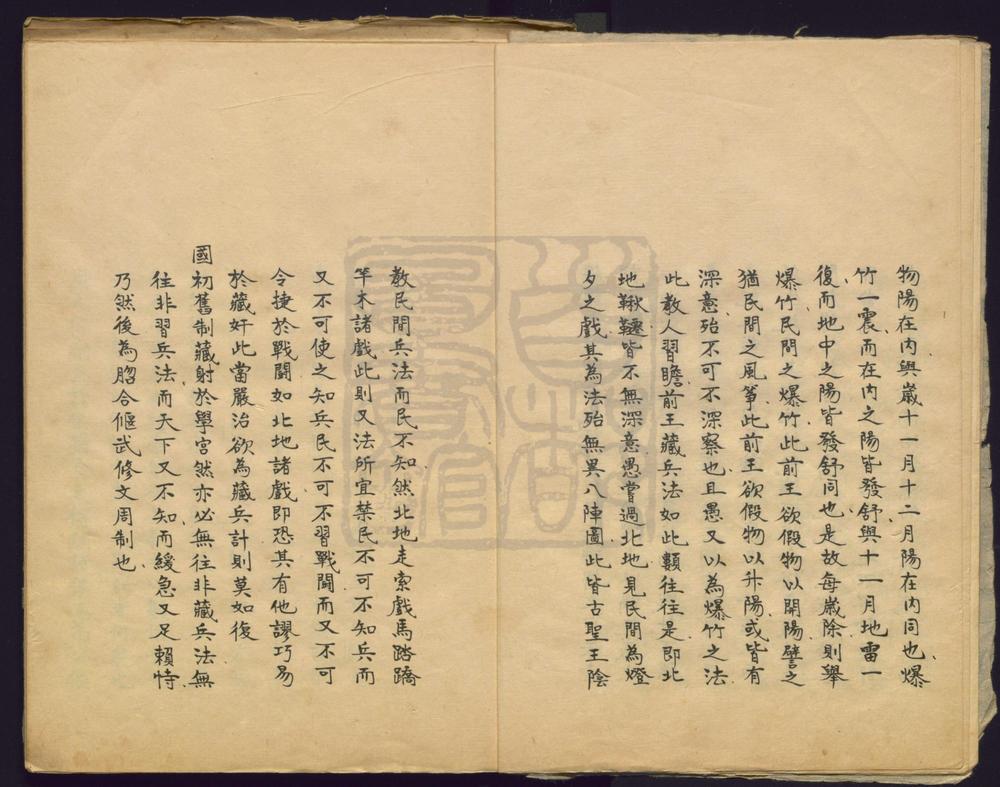 物陽在內與嵗十一月十二月陽在內同也爆
竹一震而在內之陽皆發舒與十一月地雷一
復而地中之陽皆發舒同也是故每嵗除則舉
爆竹民間之爆竹此前王欲假物以開陽譬之
猶民間之風箏此前王欲假物以升陽或皆有
深意殆不可不深察也且愚又以為爆竹之法
此教人習瞻前王藏兵法如此類往往是即北
地鞦韆皆不無深意愚嘗過北地見民間為燈
夕之戲其為法殆無異八陣圖此皆古聖王陰
教民間兵法而民不知然北地走索戲馬踏蹻
竿木諸戲此則又法所宜禁民不可不知兵而
又不可使之知兵民不可不習戰鬪而又不可
令捷於戰鬪如北地諸戲即恐其有他謬巧易
於藏奸此當嚴治欲為藏兵計則莫如復
國初舊制藏射於學宮然亦必無往非藏兵法無
往非習兵法而天下又不知而緩急又足賴恃
乃然後為脗合偃武修文周制也